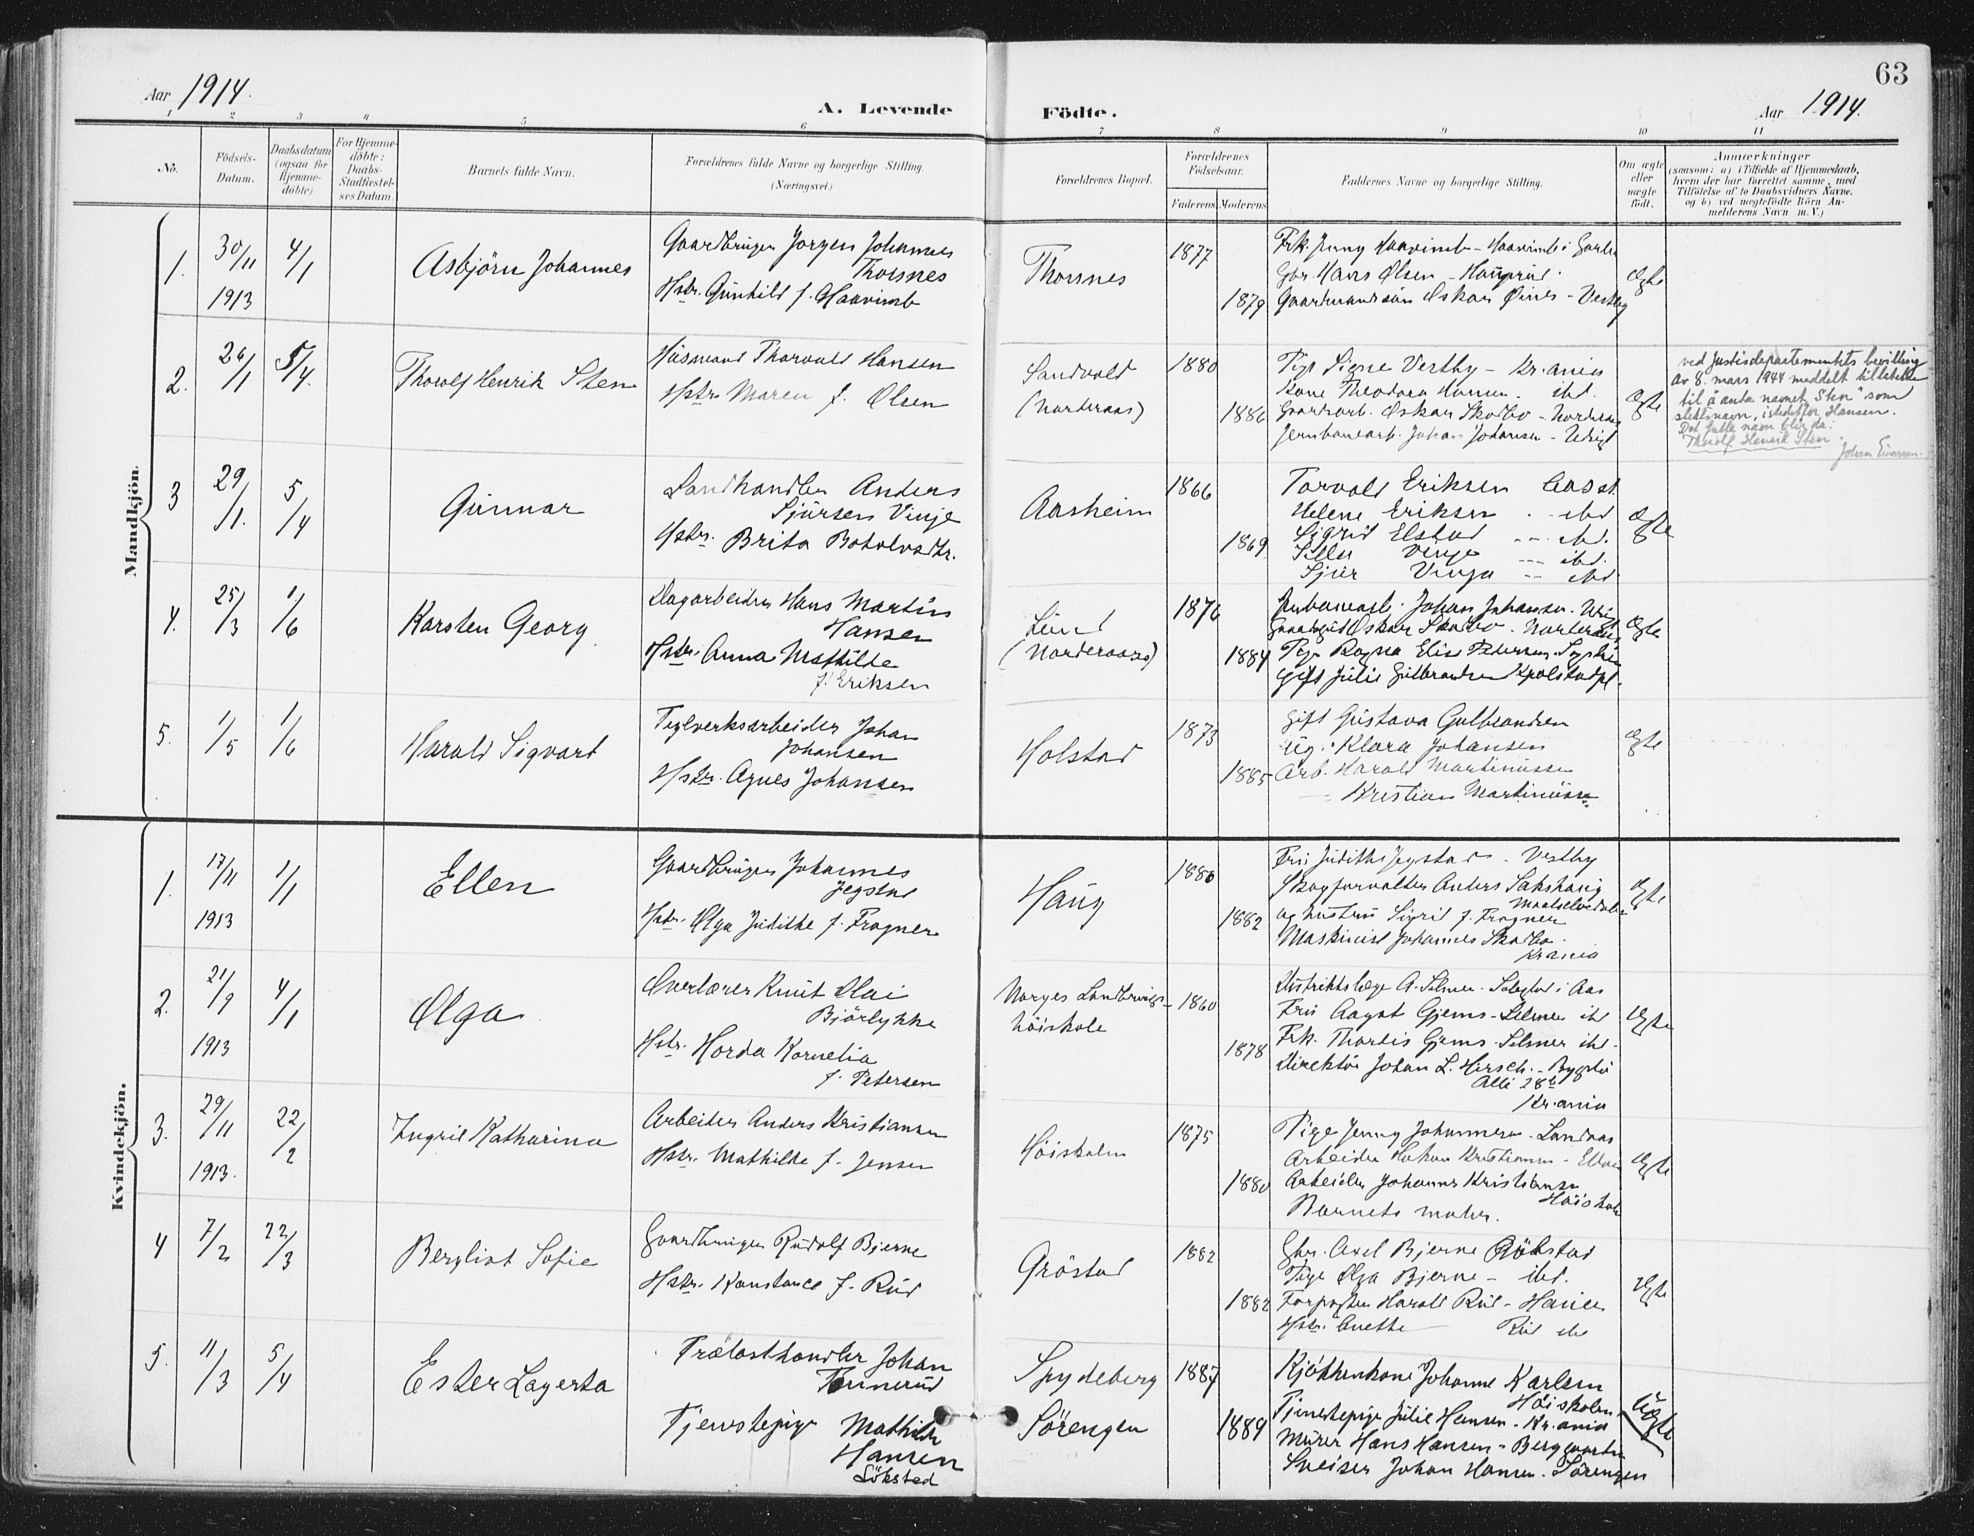 63
Aar 1914.
A. Levende
Födte.
Aar 1914.
1 2 3 4 5 6 7 8 9 10 11
No.
Födsels-
Datum.
Daabsdatum
(ogsaa for
Hjemme-
döbte).
For Hjemme-
döbte:
Daabs-
Stadfæstel-
ses Datum.
Barnets fulde Navn.
Forældrenes fulde Navne og borgerlige Stilling.
(Næringsvei.)
Forældrenes Bopæl.
Forældrenes
Födselsaar.
Faderens. Moderens.
Faddernes Navne og borgerlige Stilling.
Om ægte
eller
uægte
födt.
Anmærkninger
(saasom: a) i Tilfælde af Hjemmedaab,
hvem der har forrettet samme, med
Tilföielse af to Daabsvidners Navne,
og b) ved uægtefödte Börn An-
melderens Navn m. V.)
Mandkjön.
1.
30/11
1913
4/1
Asbjörn Johannes
Gaardbruger Jorgen Johannes
Thorsnes
Hstr. Gunhild f. Haavimb
Thorsnes
1877
1879
Frk. Jenny Haavimb - Haavimb i
Gbr. Hans Olsen - Haugerud
Gaardmandssön Oskar - Vestby
Ægte
2.
26/1
5/4.
Thorolf Henrik Sten
Husmand Thorvald Hansen
Hstr. Maren f. Olsen
Sandvold
(Norderaas)
1880
1886
Pige Signe Vestby - Kr.ania
Kone Theodora Hansen ibd.
Gaardarb. Oskar Skotbo - Norderaas
Jernbanearb. Johan Johansen -
Ægte
ved Justisdepartementets bevilling
av 8. mars 1944 meddelt tillatelse
til å anta navnet "Sten" som
slektsnavn, istedetfor Hansen.
Det fulle navn blir da:
Thorolf Henrik Sten.
Johan
3
29/1.
5/4
Gunnar
Landhandler Anders
Sjursen Vinje
Hstr. Brita Botolvsdtr.
Aasheim
1866
1869
Torvald Eriksen
Helene Eriksen - ibd
Sigrid Elstad -- ibd.
Vinje --- ibd.
Sjur Vinje -- ibd
Ægte
4.
25/3
1/6
Karsten Georg
Dagarbeider Hans Martin
Hansen
Hstr. Anna Mathilde
f. Eriksen
Lund
(Norderaas)
1876
1884
Johan Johansen.
Oskar Skotbo - Norderaas
Pige Ragna Elise Pedersen
Gift Julie Gulbrandsen
Ægte
5.
1/5
1/6
Harald Sigvart
Teglverksarbeider Johan
Johansen
Hstr. Agnes Johansen
Holstad
1873
1885
Gift Gustava Gulbrandsen
Ug. Klara Johansen
Arb. Harald Martinussen
— Kristian Martinussen
Ægte
Kvindekjön.
1.
17/11
1913
1/1
Ellen
Gaardbruger Johannes
Jegstad
Hstr. Olga Judithe f. Fragner
Haug
1880
1882
Fru Judithe Jegstad - Vestby
Skogforvalter Anders Sakshaug
Maalselvedalen
og hustru Sigrid f. Fragner
Maskinist Johannes Skotbo
Kr.ania
Ægte
2.
21/9
1913
4/1
Olga
Overlærer Knut Olai
Bjørlykke
Hstr. Horda Kornelia
f. Petersen
Norges Landbrugs-
höiskole
1860
1878
Distriktslæge A. Selmer - i Aas
Fru Aagot Gjems-Selmer ibd
Frk. Thordis Gjems-Selmer ibd.
Direktör Johan L. Hirsch - Bygdö
Alle 28b
Kr.ania
Ægte
3.
29/11
1913.
22/2
Ingrid Katharina
Arbeider Anders Kristiansen
Hstr. Mathilde f. Jensen
Höiskolen
1875
1880
Pige Jenny Johannesen - Landaas
Arbeider Kristiansen -
Arbeider Johannes Kristiansen
Höiskolen
Barnets moder.
Ægte
4
7/2
22/3
Bergliot Sofie
Gaardbruger Rudolf Bjerne
Hstr. Konstance f. Rud
Gröstad
1882
1882
Gbr. Axel Bjerne Gröstad
Pige Olga Bjerne - ibd.
Forpagter Harald Rud -
Hstr. Anette Rud do
Ægte
5.
11/3
5/4
Ester Lagerta
Trælasthandler Johan
Hstr
Tjenestepige Mathilde
Hansen
Lökstad
Spydeberg
Sörengen
1887
1889
Kjökkenkone Johanne Karlsen
Höiskolen
Tjenestepige Julie Hansen - Kr.ania
Murer Hans Hansen -
Sveiser Johan Hansen - Sörengen
Uægte